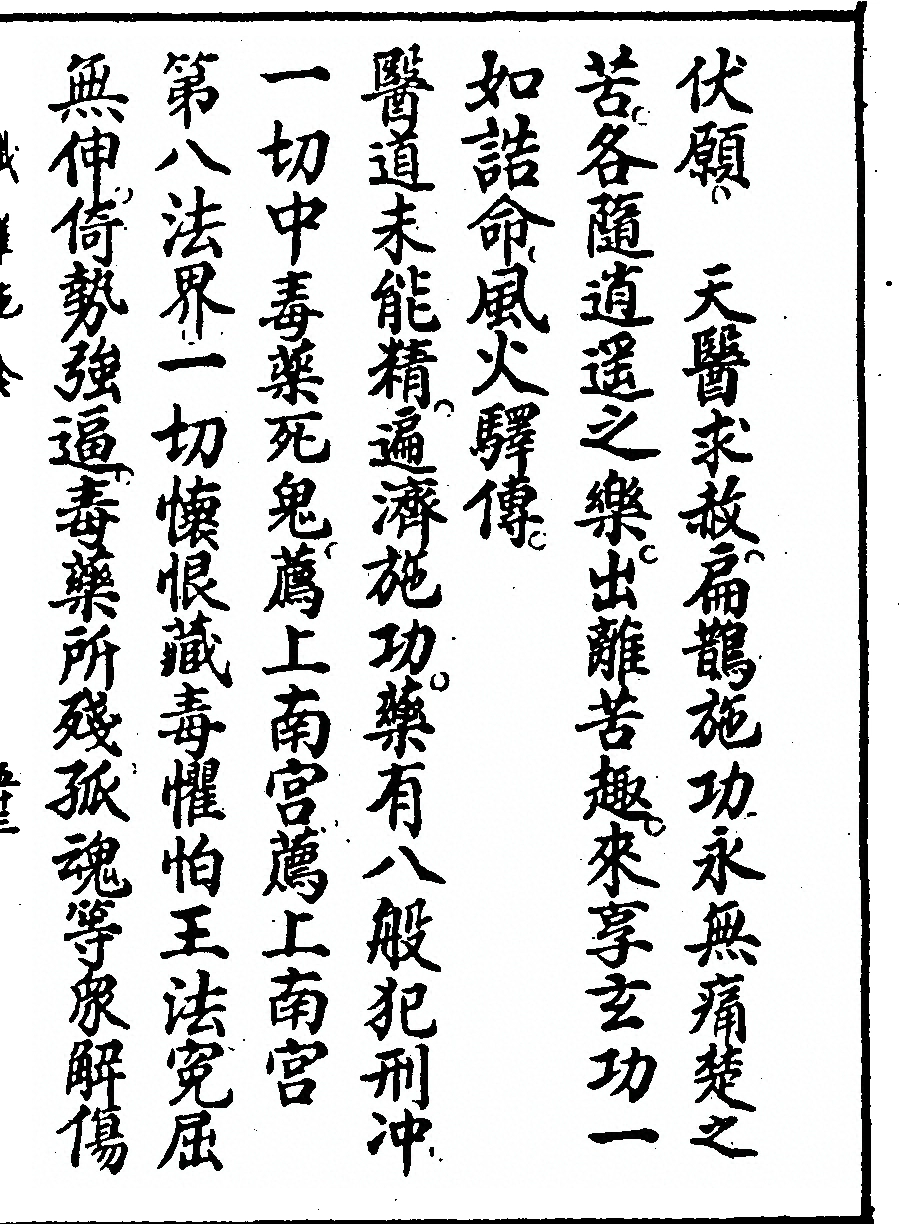 伏願　天醫求赦扁鵲施功永無痛楚之
苦各隨逍遥之樂出離苦趣來享玄功一
如誥命風火驛傳
醫道未能精遍濟施功藥有八般犯刑冲
一切中毒藥死鬼薦上南宮薦上南宮
第八法界一切懷恨藏毒懼怕王法寃屈
無伸倚勢強逼毒藥所殘孤魂等衆解傷
五十三